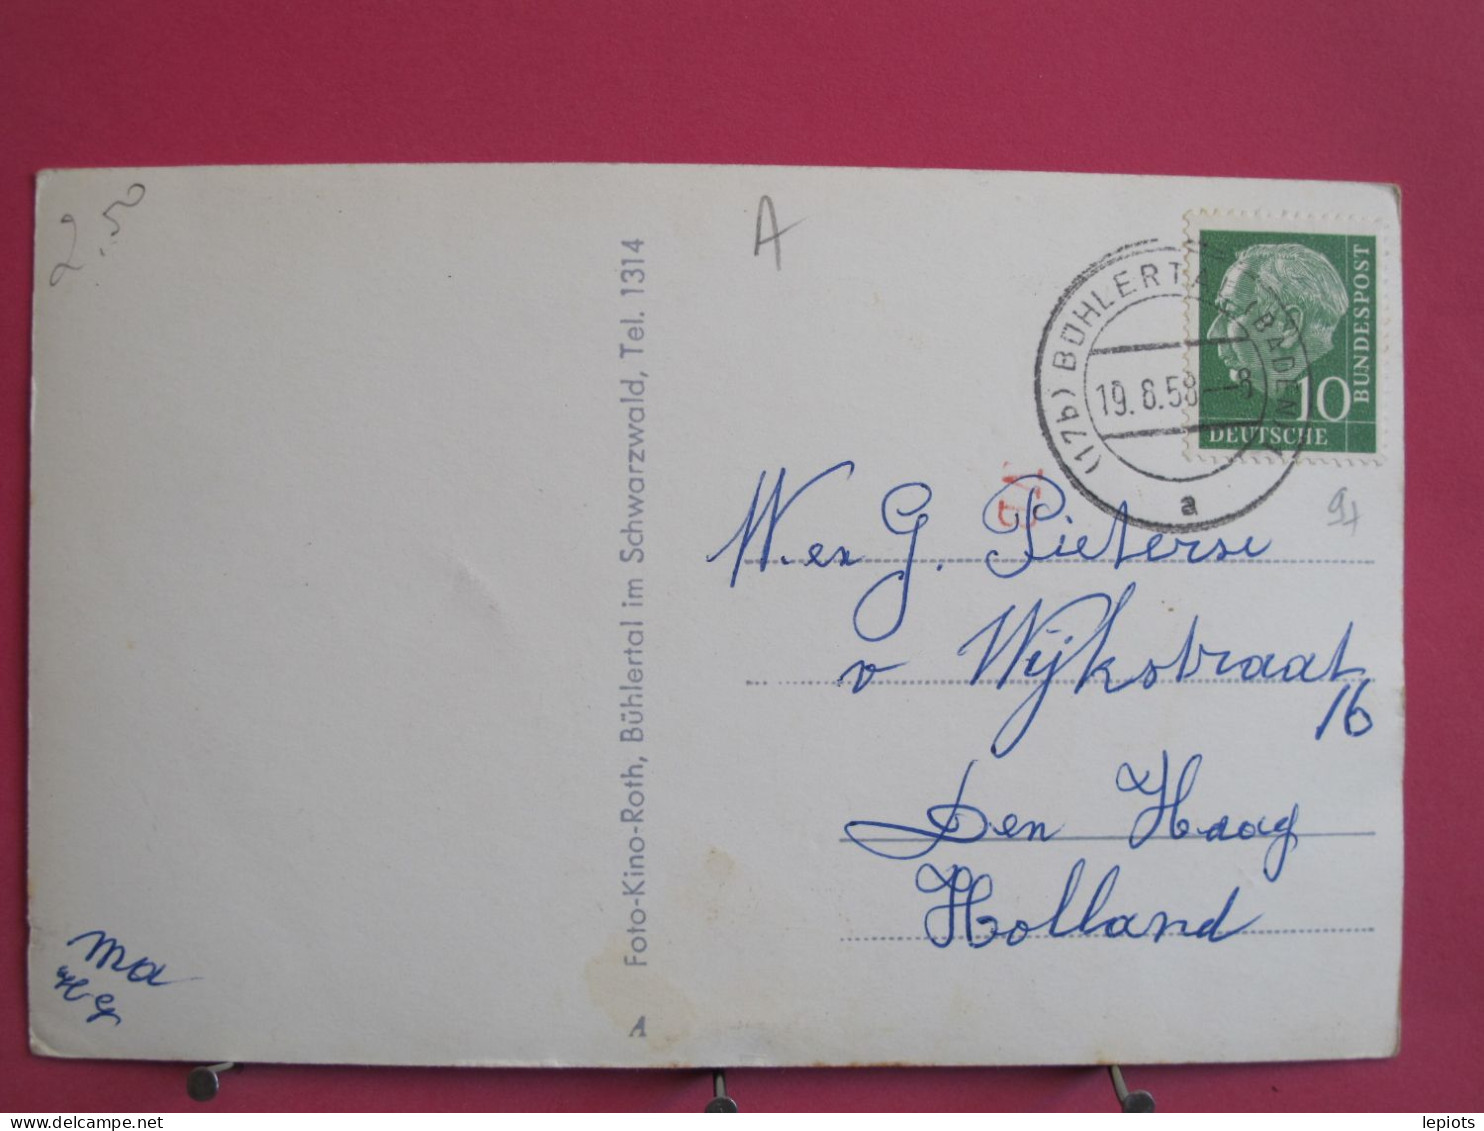 2.50
A
(17b) BÜHLERTAL (BADEN)
19.8.58.-8
a
10
BUNDESPOST
DEUTSCHE
W. en G. Pieterse
v Wijkstraat
16
Den Haag
Holland
Foto-Kino-Roth, Bühlertal im Schwarzwald, Tel. 1314
A
ma
lepiots
delcampe.net